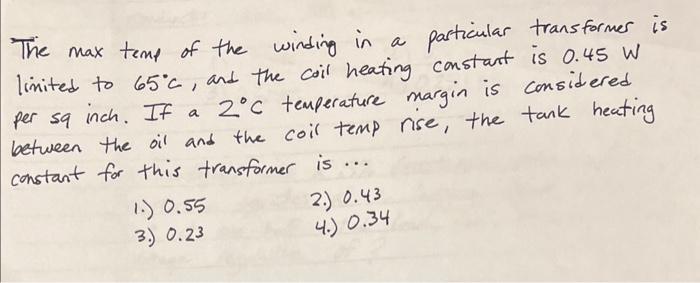 The max temp of the winding in a particular transformer is
limited to 65°C, and the coil heating constant is 0.45 W
per sq inch. If a 2°C temperature margin is considered
between the oil and the coil temp rise, the tank heating
constant for this transformer is ...
1.) 0.55 2.) 0.43
3.) 0.23 4.) 0.34